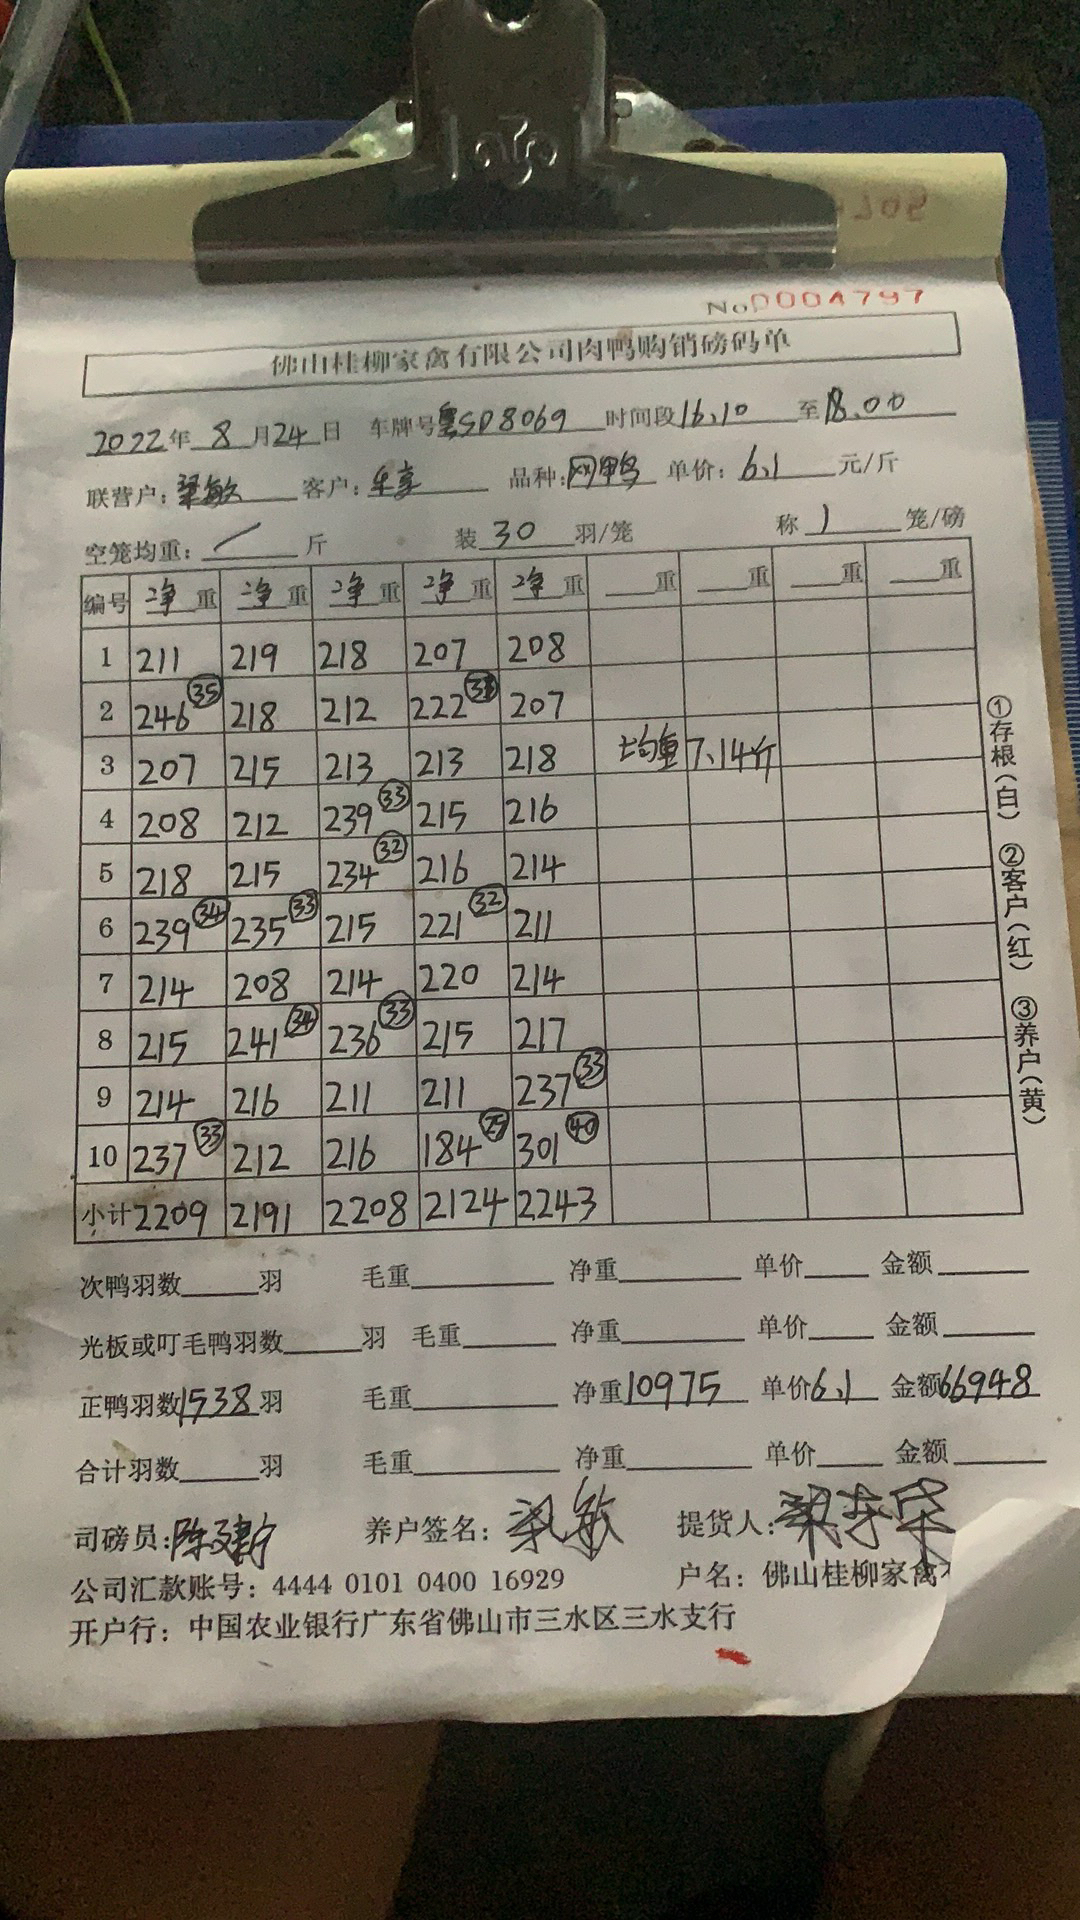 No 0004797
佛山桂柳家禽有限公司肉鸭购销磅码单
2022年 8月24日 车牌号粤SD8069 时间段16.10 至18.00
联营户:梁敏 客户: 品种:网鸭 单价:6.1 元/斤
空笼均重:/ 斤 装30 羽/笼 称1 笼/磅
编号 净重 净重 净重 净重 净重 重 重 重 重
1 211 219 218 207 208
2 246㉟ 218 212 222 207
3 207 215 213 213 218 均重 7.14斤
4 208 212 239㉝ 215 216
5 218 215 234㉜ 216 214
6 239㉞ 235㉝ 215 221㉜ 211
7 214 208 214 220 214
8 215 241㉞ 236㉝ 215 217
9 214 216 211 211 237㉝
10 237㉝ 212 216 184 301㊵
小计 2209 2191 2208 2124 2243
①存根(白) ②客户(红) ③养户(黄)
次鸭羽数 羽 毛重 净重 单价 金额
光板或叮毛鸭羽数 羽 毛重 净重 单价 金额
正鸭羽数1538羽 毛重 净重10975 单价6.1 金额66948
合计羽数 羽 毛重 净重 单价 金额
司磅员:陈建 养户签名:梁敏 提货人:梁
公司汇款账号:4444 0101 0400 16929 户名:佛山桂柳家禽
开户行:中国农业银行广东省佛山市三水区三水支行